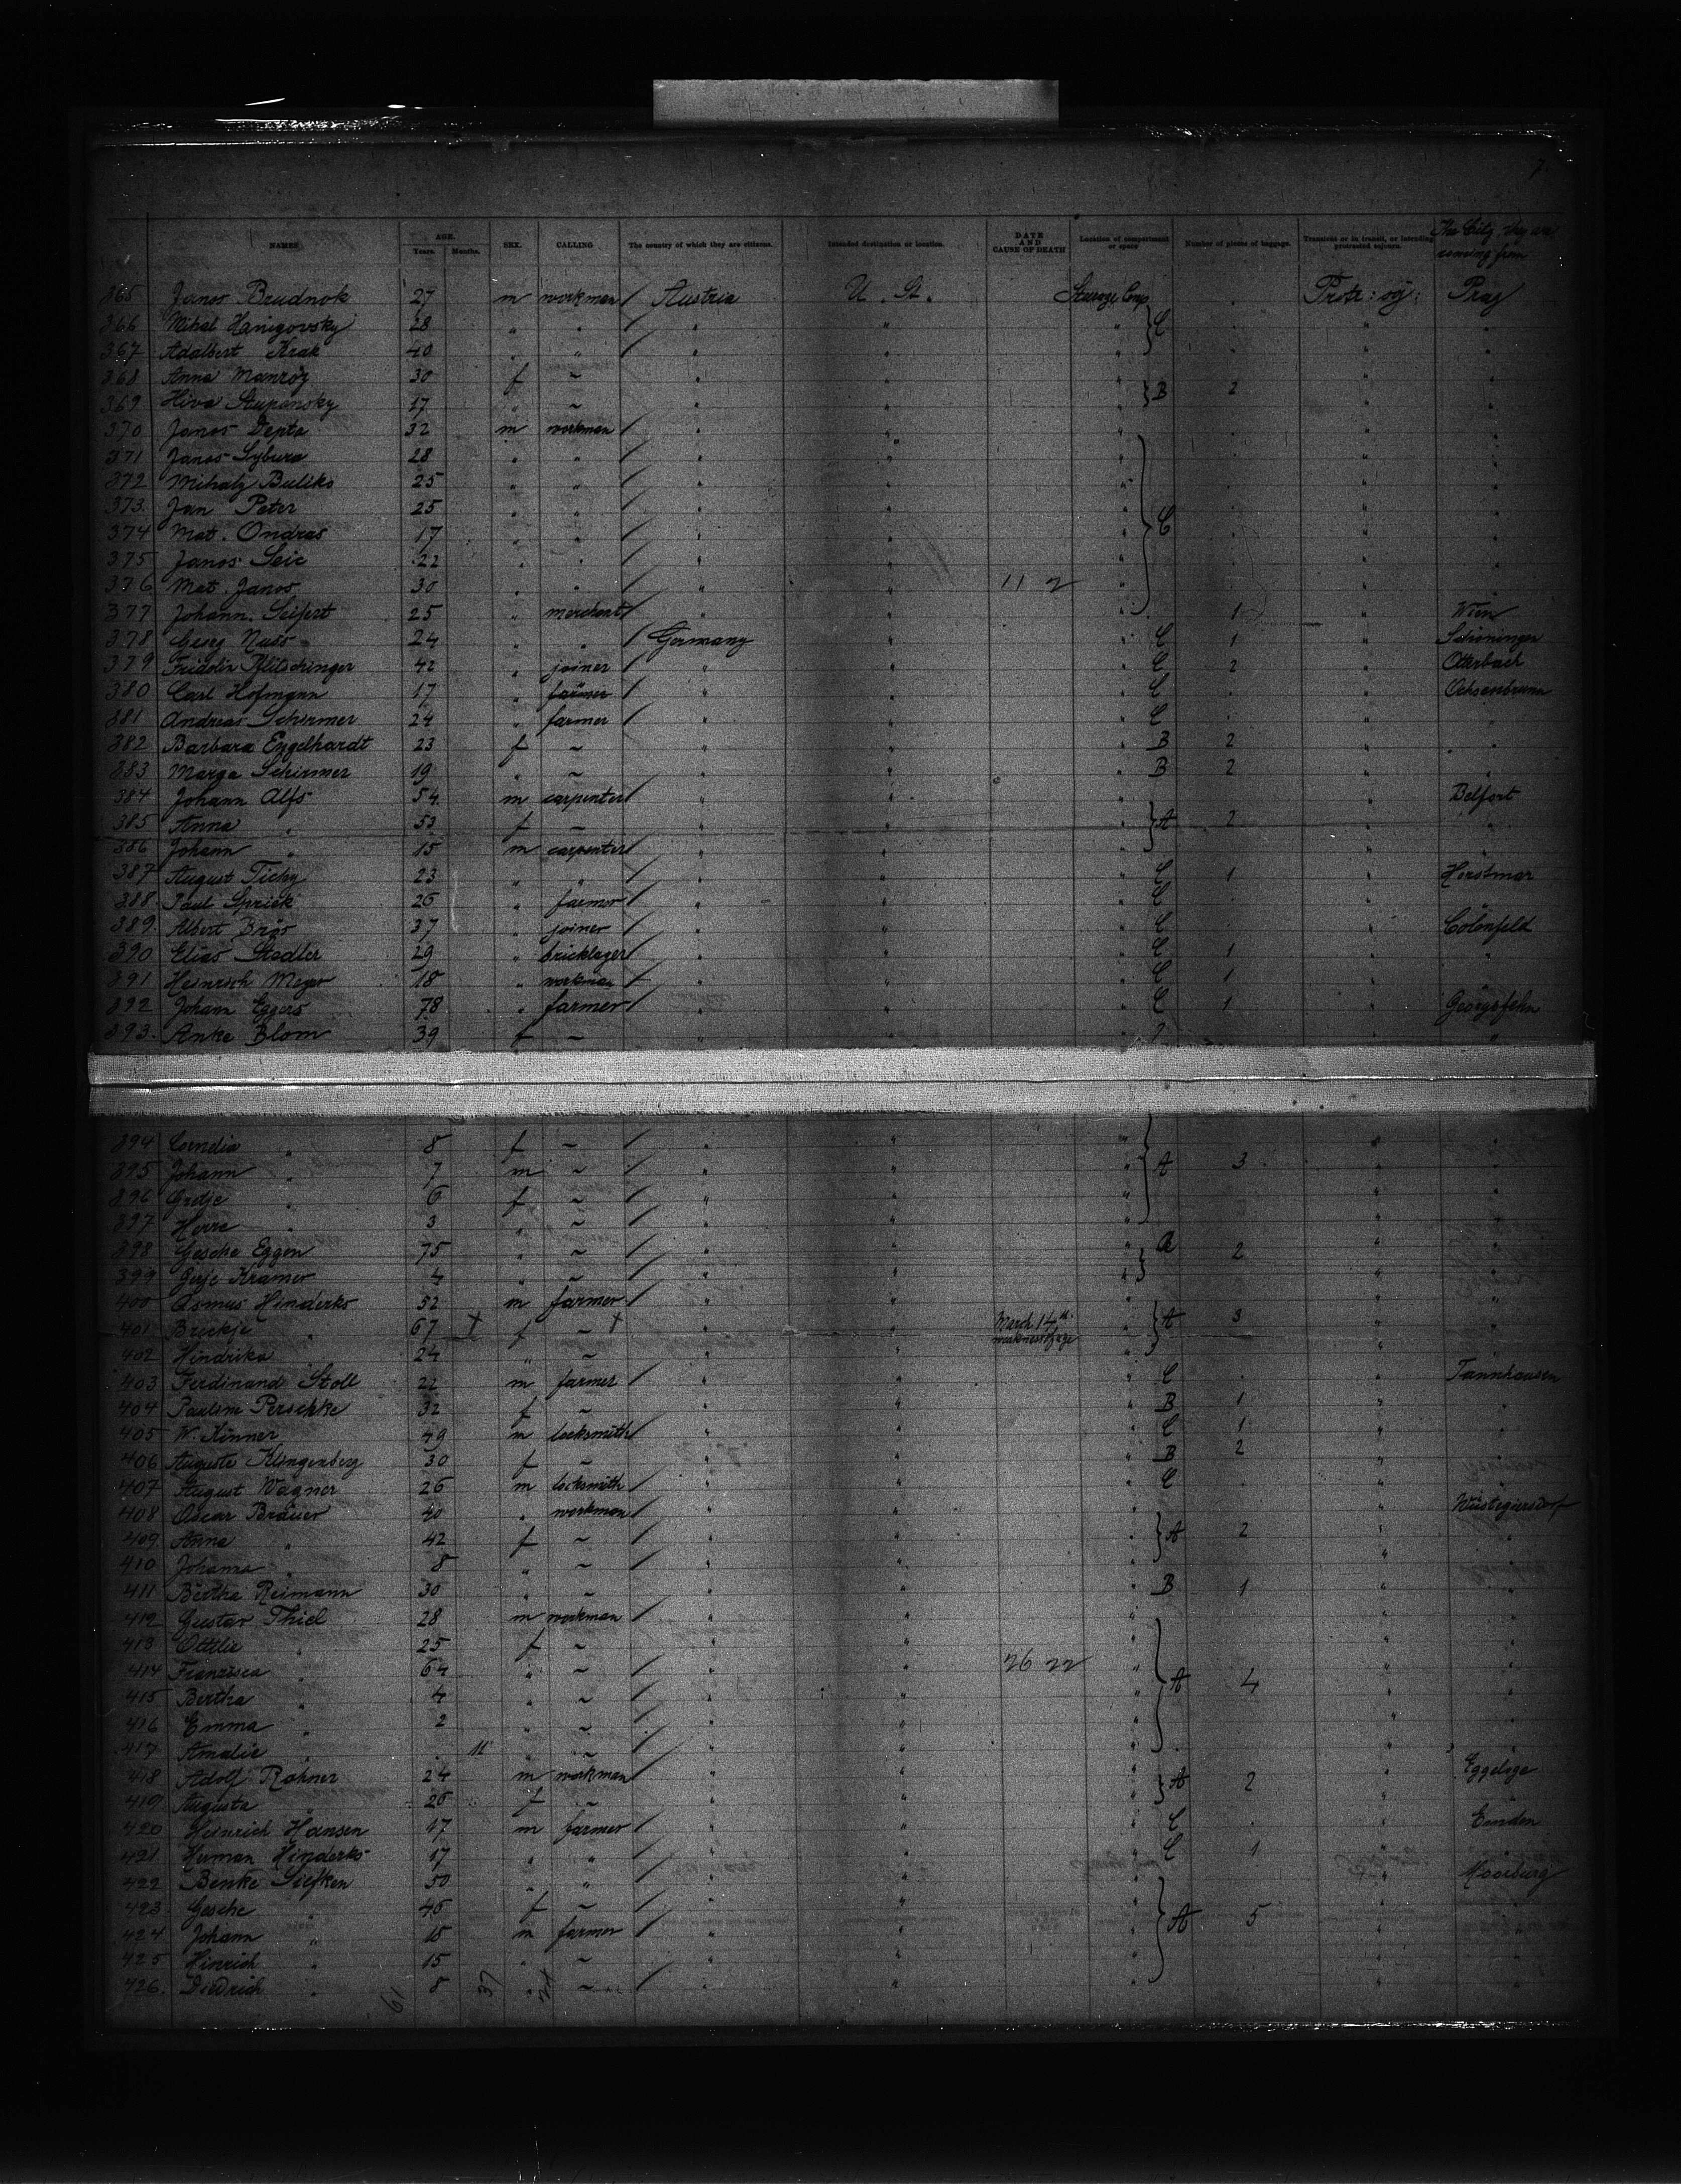 7
NAMES AGE. Years. Months. SEX. CALLING The country of which they are citizens. Intended destination or location. DATE AND CAUSE OF DEATH Location of compartment or space Number of pieces of baggage. Transient or in transit, or intending protracted sojourn. The City, they are coming from
365 Janos Brudnok 27 m workman / Austria U. St. Steerage Comp. Protr: soj: Prag
366 Mihal Hanigovsky 28 " " / " " " } C " "
367 Adalbert Krak 40 " " / " " " " "
368 Anna Manróz 30 f ~ " " " } B 2 " "
369 Hiva Stupansky 17 " ~ " " " " "
370 Janos Depta 32 m workman / " " " " "
371 Janos Sybura 28 " " / " " " " "
372 Mihaly Buliks 25 " " / " " " " "
373. Jan Peter 25 " " / " " " " "
374 Mat. Ondras 17 " " / " " " } C " "
375 Janos Seic 22 " " / " " " " "
376 Mat. Janos 30 " " / " " 11 2 " " "
377 Johann Seifert 25 " merchant / " " " 1 " Wien
378 Georg Nuss 24 " " / Germany " " C 1 " Schöningen
379 Fridolin Pflitschinger 42 " joiner / " " " C 2 " Otterbach
380 Carl Hofmann 17 " farmer / " " " C " Ochsenbrunn
381 Andreas Schirmer 24 " farmer / " " " C " "
382 Barbara Engelhardt 23 f ~ " " " B 2 " "
383 Marga Schirmer 19 " ~ " " " B 2 " "
384 Johann Alfs 54 m carpenter / " " " " Belfort
385 Anna " 53 f ~ " " " } A 2 " "
386 Johann " 15 m carpenter / " " " " "
387 August Tichy 23 " " / " " " C 1 " Horstmar
388. Paul Sprick 26 " farmer / " " " C " "
389. Albert Brös 37 " joiner / " " " C " Colonfeld
390 Elias Stadler 29 " bricklayer / " " " C 1 " "
391 Heinrich Meyer 18 " workman / " " " C 1 "
392 Johann Eggers 78 " farmer / " " " C 1 " Georgsfehn
393. Anke Blom 39 f ~ " " " "
394 Cornelia " 8 f ~ / " " " " "
395 Johann " 7 m ~ / " " " } A 3 " "
396 Gretje " 6 f ~ / " " " " "
397 " 3 " ~ / " " " " "
398 Gesche Eggen 75 " ~ / " " " } A 2 " "
399 Kramer 4 " ~ / " " " " "
400 Asmus Hinderks 52 m farmer / " " " " "
401 Breckje " 67 + f ~ + " " March 14th. weakness of age " } A 3 " "
402 Hindrika 24 " ~ " " " " "
403 Ferdinand Stoll 22 m farmer / " " " C " Tannhausen
404 Paulina Perschke 32 f ~ " " " B 1 " "
405 W. Kinner 49 m locksmith / " " " C 1 " "
406 Auguste Klingenberg 30 f ~ " " " B 2 " "
407 August Wagner 26 m locksmith / " " " C " "
408 Oscar Bräuer 40 " workman / " " " " Wüstegiersdorf
409 Anna " 42 f ~ " " " } A 2 " "
410 Johanna " 8 " ~ / " " " " "
411 Bertha Reimann 30 " ~ " " " B 1 " "
412 Gustav Thiel 28 m workman / " " " " "
413 Ottilie " 25 f ~ " " " " "
414 Franzisca " 64 " ~ / " " 26 22 " " "
415 Bertha " 4 " ~ / " " " } A 4 " "
416 Emma " 2 " ~ / " " " " "
417 Amalie " 11 " ~ / " " " " "
418 Adolf Rohner 24 m workman / " " " } A 2 " Eggeloge
419 Augusta " 26 f ~ " " " " "
420 Heinrich Hansen 17 m farmer / " " " C " Emden
421 Herman Hinderks 17 " " / " " " C 1 " "
422 Benke Siefken 50 " " / " " " " Moorburg
423 Gesche " 46 f ~ " " " " "
424 Johann " 18 m farmer / " " " } A 5 " "
425 Hinrich " 15 " ~ " " " " "
426. Diedrich " 8 " ~ / " " " " "
61 37 24